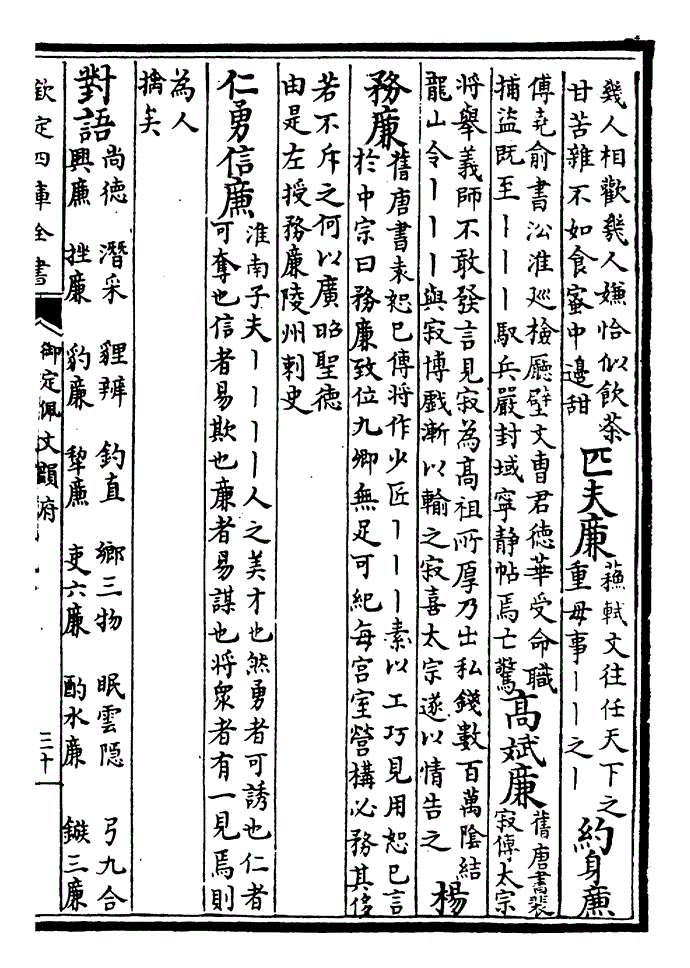 幾人相歡幾人嫌恰似飲茶
甘苦雜不如食蜜中邊甜
匹夫廉
蘇軾文往任天下之
重毋事丨丨之丨
約身廉
傅堯俞書㳂淮廵檢廳壁文曺君徳華受命職
捕盜既至丨丨丨馭兵嚴封域寧静帖焉亡驚
高斌廉
舊唐書裴
寂傳太宗
將舉義師不敢發言見寂為髙祖所厚乃出私錢數百萬陰結
龍山令丨丨丨與寂博戲漸以輸之寂喜太宗遂以情告之
楊
務廉
舊唐書袁恕巳傳將作少匠丨丨丨素以工巧見用恕巳言
於中宗曰務廉致位九卿無足可紀每宫室營構必務其侈
若不斥之何以廣昭聖徳
由是左授務廉陵州刺史
仁勇信廉
淮南子夫丨丨丨丨人之美才也然勇者可誘也仁者
可奪也信者易欺也廉者易謀也將衆者有一見焉則
為人
擒矣
對語
尚徳 潛采 貍辨 釣直 鄉三物 眠雲隠 弓九合
興廉 挫廉 豹廉 犂廉 吏六廉 酌水廉 鏃三廉
欽定四庫全書
御定佩文韻府
三十